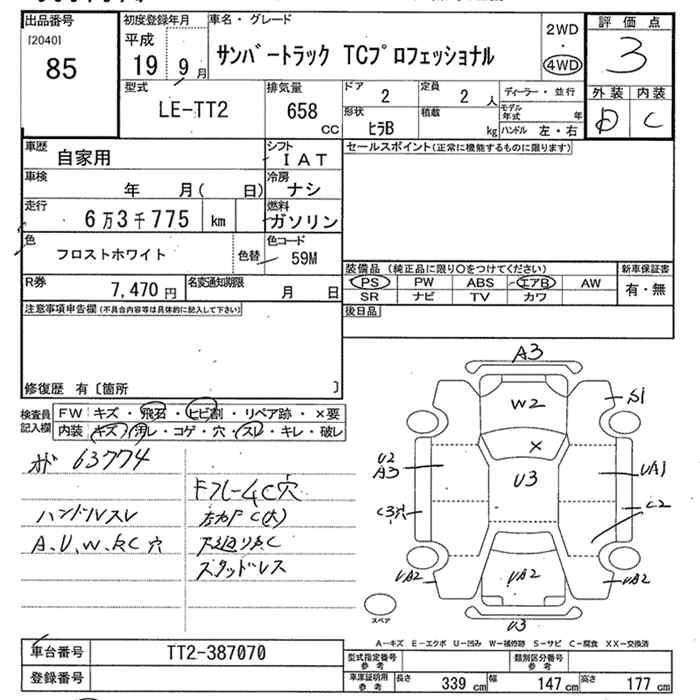 出品番号 初度登録年月 車名・グレード 評価点
[2040] 平成 2WD
85 19 9月 サンバートラック TCプロフェッショナル ・ 3
4WD
型式 排気量 ドア 2 定員 2 人 ディーラー・並行 外装 内装
LE-TT2 658 cc 形状 ヒラB 積載 kg モデル年式 年 D C
ハンドル 左・右
車歴 自家用 シフト IAT セールスポイント(正常に機能するものに限ります)
車検 年 月( 日) 冷房 ナシ
走行 6万3千775 km 燃料 ガソリン
色 フロストホワイト 色替 色コード 59M
装備品 (純正品に限り○をつけてください) 新車保証書
R券 7,470円 名変通知期限 月 日 PS PW ABS エアB AW 有・無
SR ナビ TV カワ
注意事項申告欄(不具合内容等は具体的に記入して下さい) 後日品
修復歴 有〔箇所 〕
検査員記入欄 FW キズ・飛石・ヒビ割・リペア跡・×要
内装 キズ・汚レ・コゲ・穴・スレ・キレ・破レ
63774
ハンドルスレ
A、U、W、S、C 穴
C穴
C(大)
下廻りS、C
スタッドレス
A3
W2 S1
X
U2
A3 U3 UA1
C3穴 C2
UA2 UA2 UA2
スペア U3
A-キズ E-エクボ U-凹み W-補修跡 S-サビ C-腐食 XX-交換済
車台番号 TT2-387070 型式指定番号 参考 類別区分番号 参考
登録番号 車庫証明用 参考 長さ 339 cm 幅 147 cm 高さ 177 cm